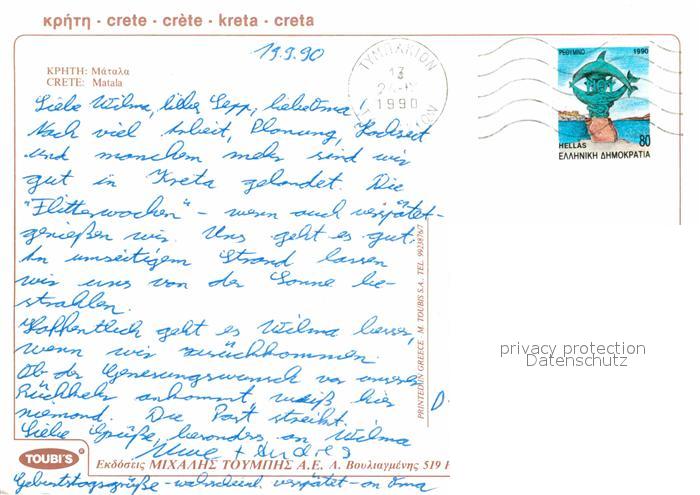 κρήτη · crete · crète · kreta · creta
19.9.90
ΤΥΜΠΑΚΙΟΝ
13
1990
ΡΕΘΥΜΝΟ 1990
HELLAS 80
ΕΛΛΗΝΙΚΗ ΔΗΜΟΚΡΑΤΙΑ
ΚΡΗΤΗ: Μάταλα
CRETE: Matala
Liebe Wilma, lieber Sepp, liebe Oma!
Nach viel Arbeit, Planung, Hochzeit
und manchem mehr sind wir
gut in Kreta gelandet. Die
"Flitterwochen" - wenn auch verspätet-
genießen wir. Uns geht es gut.
An umseitigem Strand lassen
wir uns von der Sonne be-
strahlen.
Hoffentlich geht es Wilma besser,
wenn wir zurückkommen.
Ob der Genesungswunsch vor unserer
Rückkehr ankommt, weiß hier
niemand. Die Post streikt.
Liebe Grüße, besonders an Wilma
Uwe + Andrea
Geburtstagsgrüße - wahrscheinl. verspätet - an Oma
D.
PRINTED IN GREECE - M. TOUBIS S.A. TEL. 9923876/7
TOUBI'S
Εκδόσεις ΜΙΧΑΛΗΣ ΤΟΥΜΠΗΣ Α.Ε. Λ. Βουλιαγμένης 519
privacy protection
Datenschutz